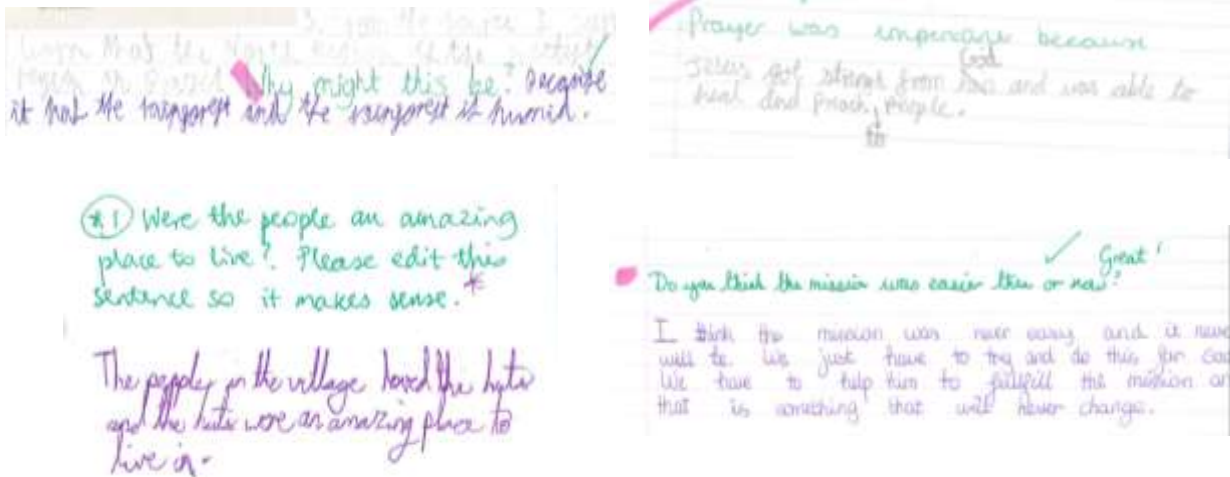 Why might this be? Because
it hot the rainforest and the rainforest is humid.
Prayer was important because
God
Jesus got strength from and was able to
heal and preach people.
to
*1 Were the people an amazing
place to live? Please edit this
sentence so it makes sense. *
The people in the village loved the huts
and the huts were an amazing place to
live in.
Great!
Do you think the mission was easier then or now?
I think the mission was never easy and it never
will be. We just have to try and do this for God
We have to help him to fullfill the mission
that is something that will never change.